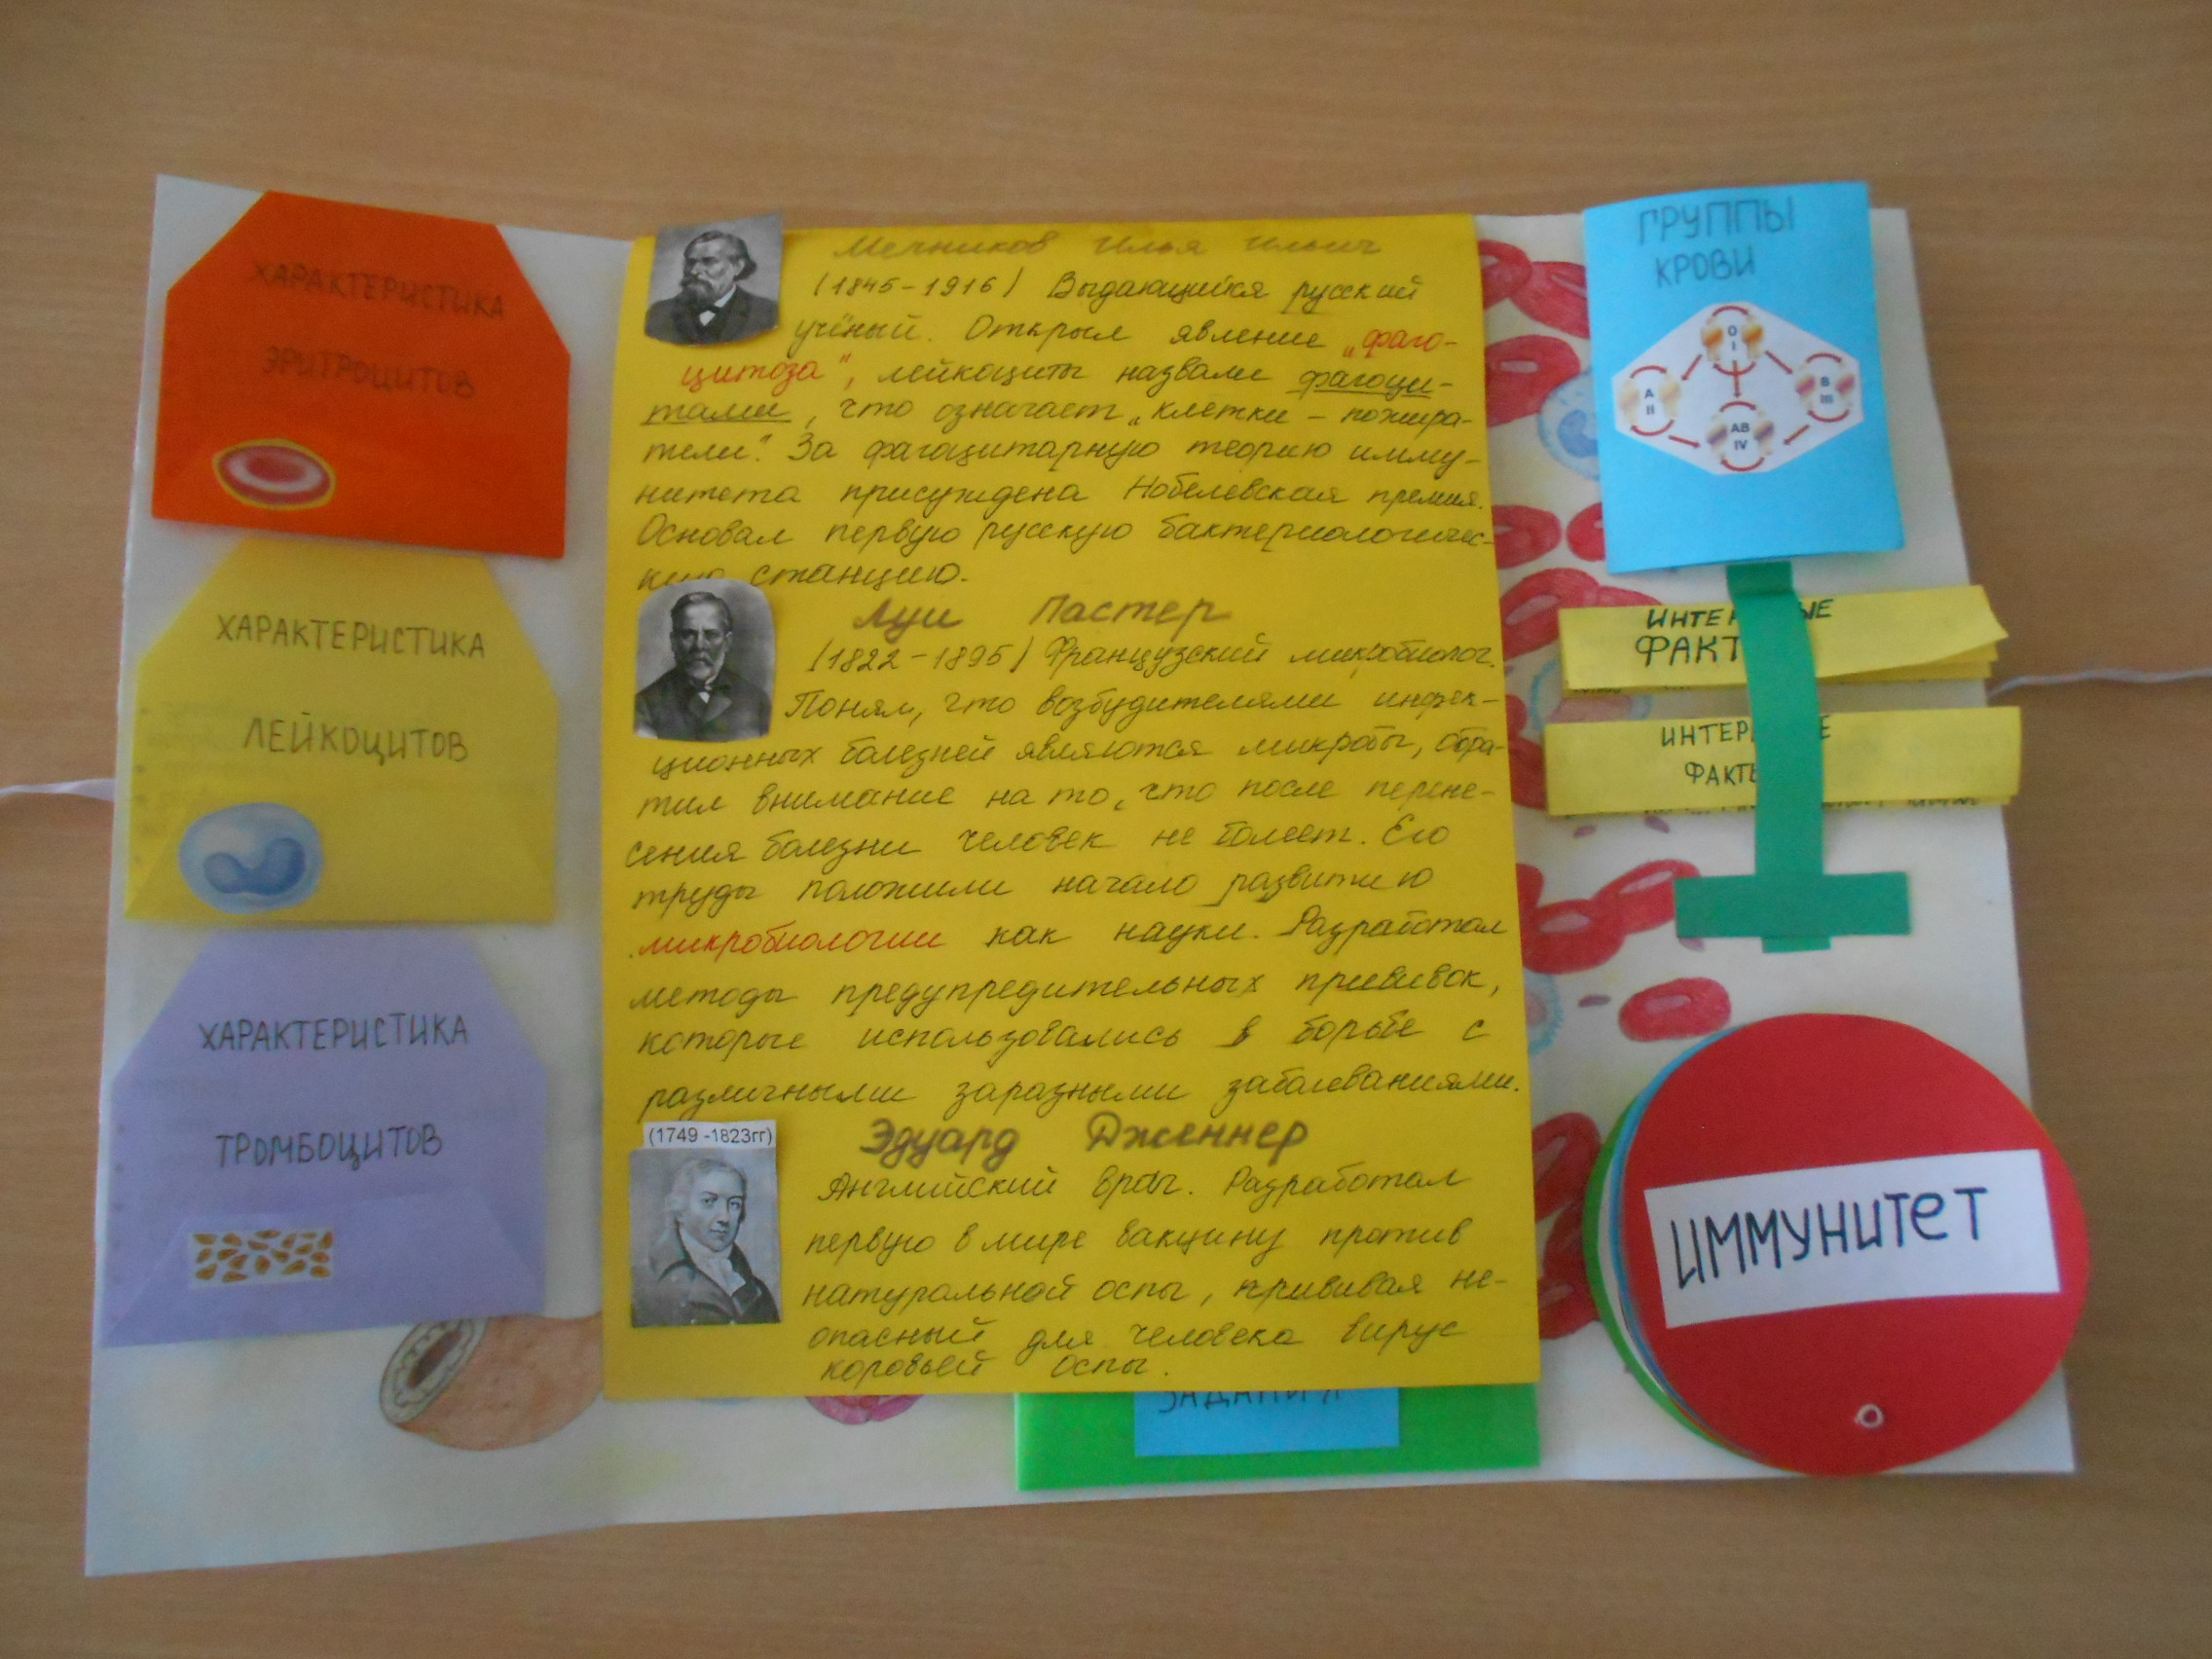 ХАРАКТЕРИСТИКА
ЭРИТРОЦИТОВ
ХАРАКТЕРИСТИКА
ЛЕЙКОЦИТОВ
ХАРАКТЕРИСТИКА
ТРОМБОЦИТОВ
Мечников Илья Ильич
(1845-1916) Выдающийся русский
учёный. Открыл явление „фаго-
цитоза", лейкоциты назвали фагоци-
тами, что означает „клетки - пожира-
тели". За фагоцитарную теорию имму-
нитета присуждена Нобелевская премия.
Основал первую русскую бактериологичес-
кую станцию.
Луи Пастер
(1822-1895) Французский микробиолог.
Понял, что возбудителями инфек-
ционных болезней являются микробы, обра-
тил внимание на то, что после перене-
сения болезни человек не болеет. Его
труды положили начало развитию
микробиологии как науки. Разработал
методы предупредительных прививок,
которые использовались в борьбе с
различными заразными заболеваниями.
(1749 -1823гг)
Эдуард Дженнер
Английский врач. Разработал
первую в мире вакцину против
натуральной оспы, прививая не-
опасный для человека вирус
коровьей оспы.
ЗАДАНИЯ
ГРУППЫ
КРОВИ
O
I
A
II
B
III
AB
IV
ИНТЕР ЫЕ
ФАКТ
ИНТЕР Е
ФАКТЫ
ИММУНИТЕТ